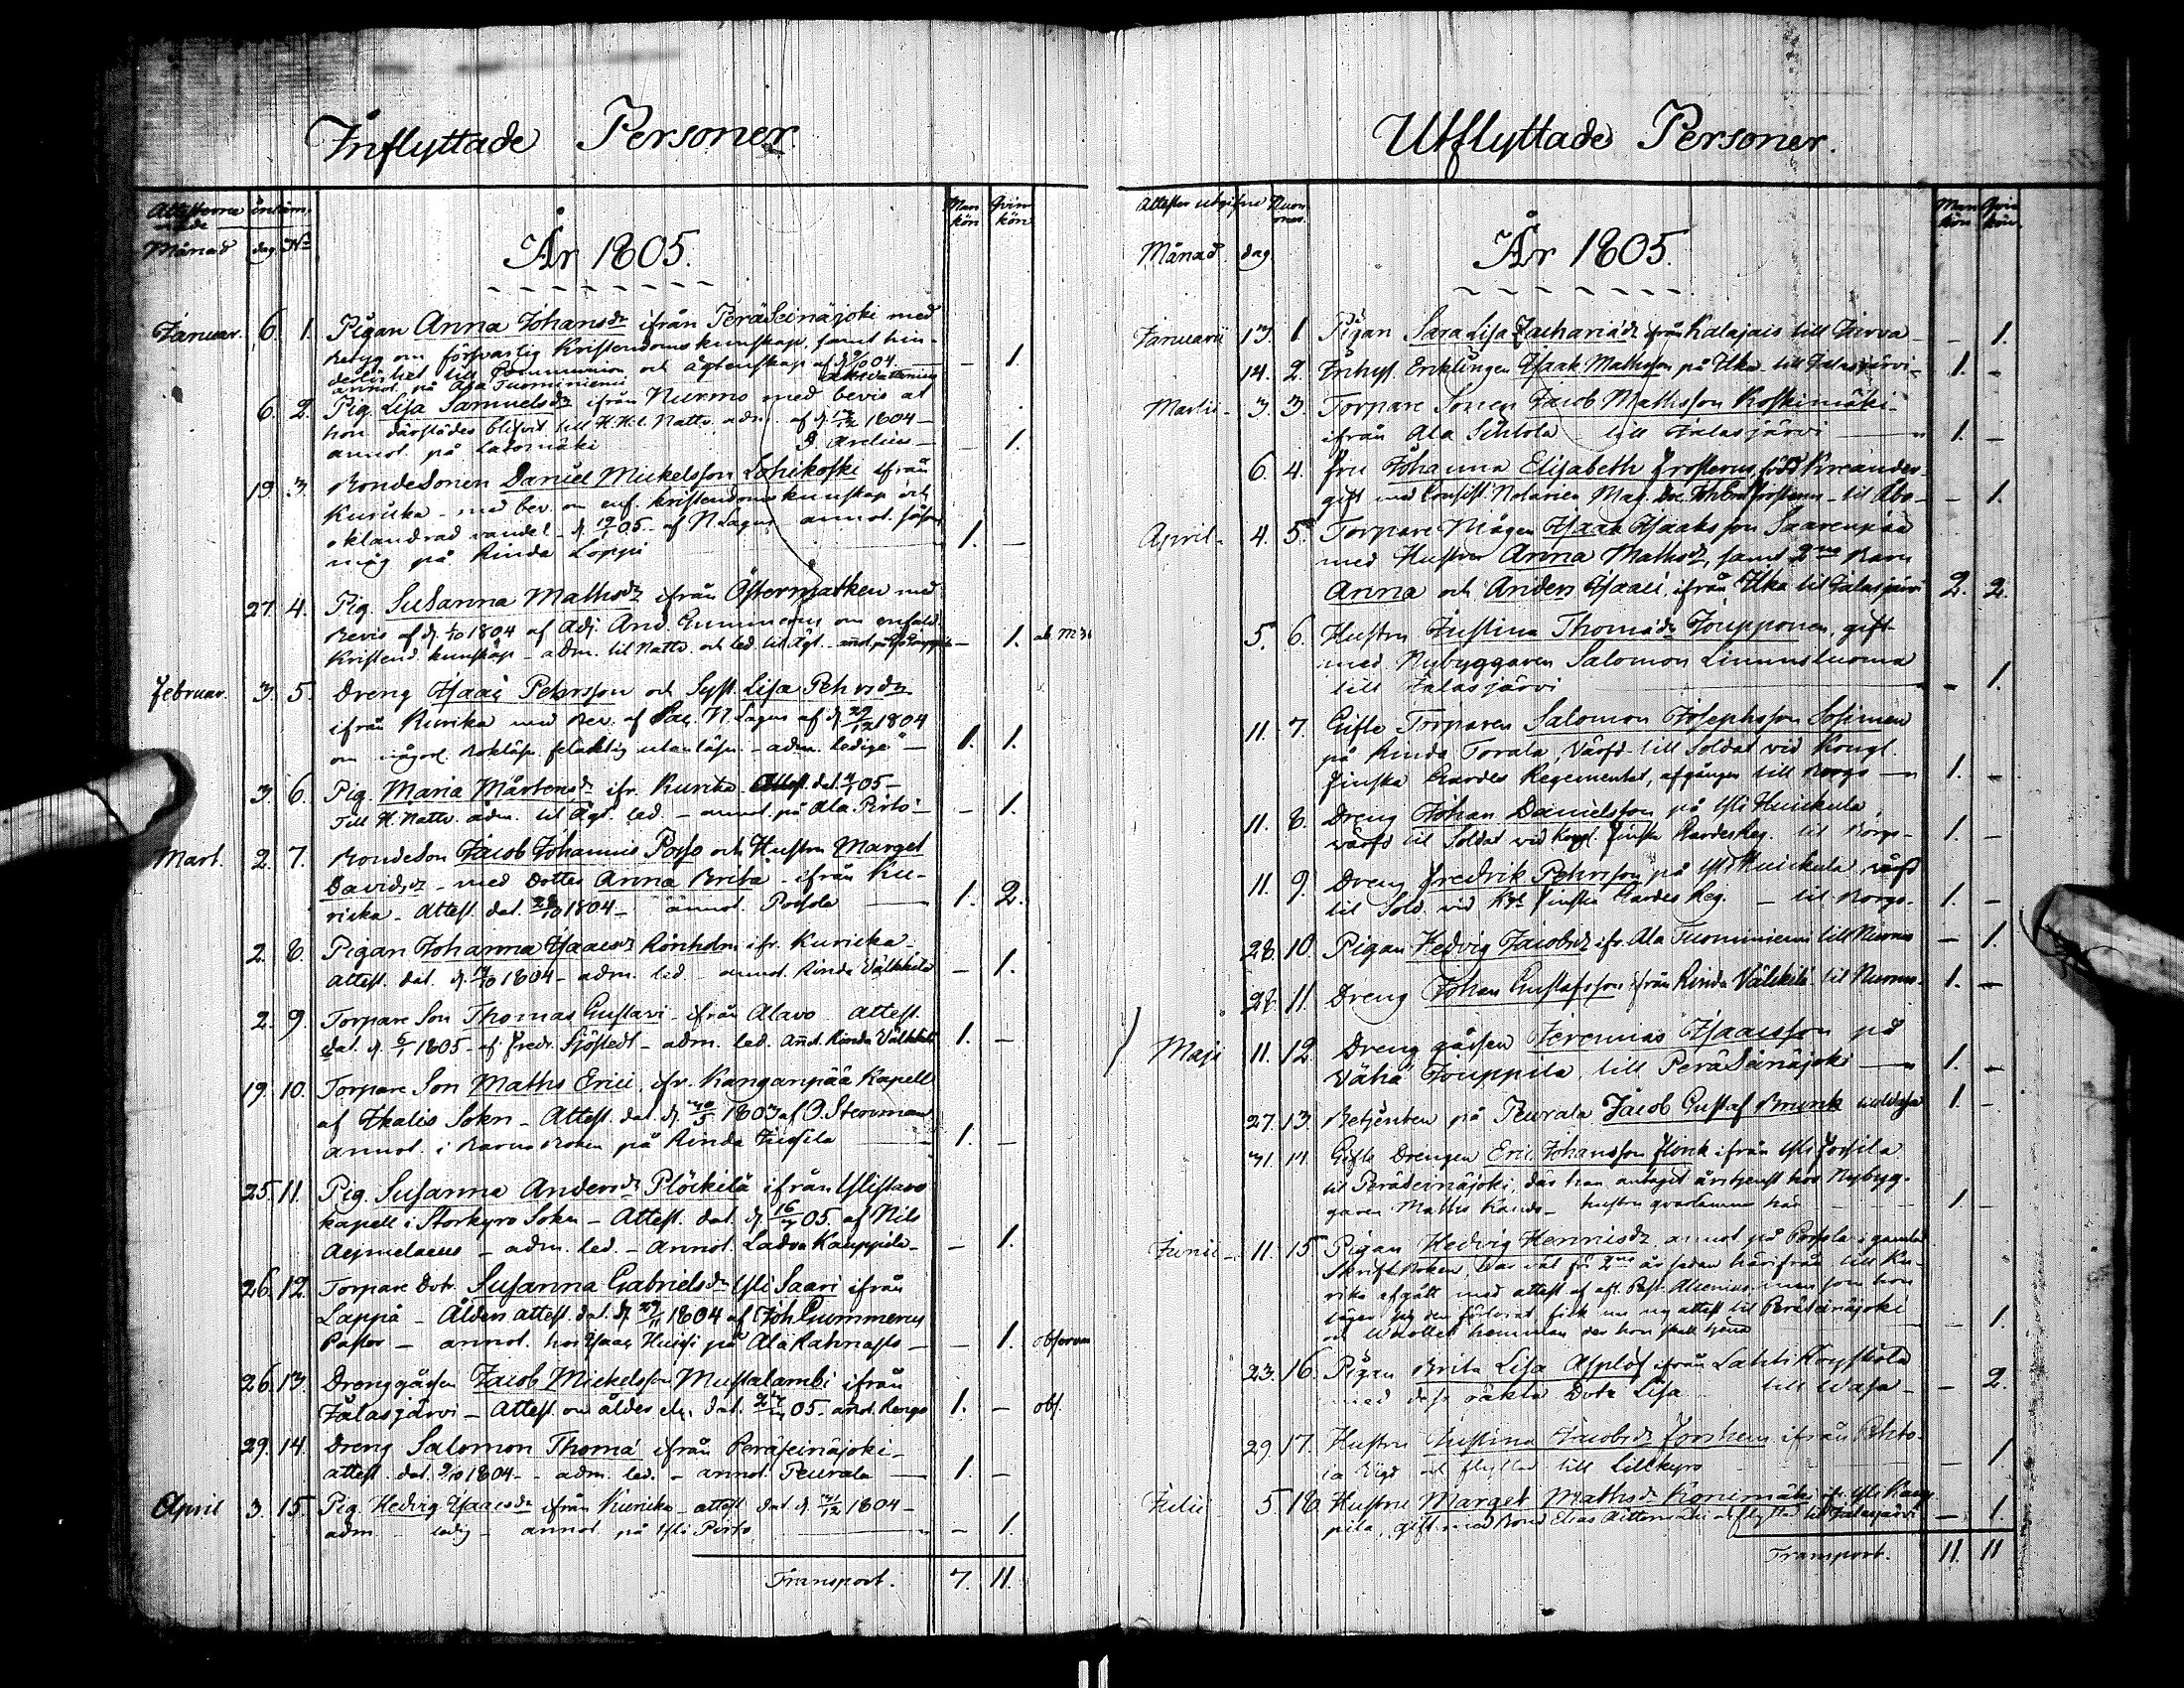 Inflyttade Personer.
Attesterne inkom-
Man kön
Qvin kön
Månad dag No
År 1805.
Januar. 6. 1. Pigan Anna Johansdr ifrån PeräSeinäjoki med
betyg om försvarlig Kristendoms kunskap, samt hin-
derlöshet till Communion och ägtenskap af d. 04.
annot. på Ala Tuominiemi — 1.
6. 2. Pig. Lisa Samuelsdr ifrån Nurmo med bevis at
hon därstädes blifvit till H. H. l. Nattv. adm. af d. 1804 —
annot. på Latomäki — 1.
19. 3. Bondesonen Daniel Mickelsson Lohikoski ifrån
Kuricka — med bev. om enf. kristendoms kunskap och
oklandrad vandel — d. 05. af N. Lagus annot. såsom
måg på Rinda Loppi 1. —
27. 4. Pig. Susanna Mathsdr ifrån Östermarken med
Bevis af d. 1/10 1804 af Adj. And. Gummerus om enfald.
Kristend. kunskap — adm. til Nattv. och led. til Ägt. — 1.
Februar. 3. 5. Dreng Isaac Pehrsson och Syst. Lisa Pehrsdr
ifrån Kurika med Bev. af Pac. N. Lagus af d. 29/12 1804
om någorl. bokläsn. felaktig utanläsn. — adm. ledige — 1. 1.
3. 6. Pig. Maria Mårtensdr ifr. Kurika Attest. dat. 05 —
Till H. Nattv. adm. til Ägt. led. — annot. på Ala Pirto — — 1.
Mart. 2. 7. Bondeson Jacob Johannis Posso och Hustru Marget
Davidsdr — med Dotter Anna Brita — ifrån Ku-
ricka — Attest. dat. 28/10 1804 — annot. Possola — 1. 2.
2. 8. Pigan Johanna Isaacsdr Rönholm ifr. Kuricka —
attest. dat. d. 1804 — adm. led. — annot. Rinda Välkkilä — 1.
2. 9. Torpare Son Thomas Gustavi — ifrån Alavo attest.
dat. d. 6/1 1805 — af Fredr. Sjöstedt — adm. led. annot. Rinda Välkkilä 1. —
19. 10. Torpare Son Maths Erici ifr. Kanganpää Kapell
af Ikalis Sokn — Attest. dat. d. 30/5 1803 af O. Stenman
annot. i Barns Boken på Rinda Jussila — 1. —
25. 11. Pig. Susanna Andersdr Plöckilä ifrån Ylistaro
kapell i Storkyro Sokn — Attest. dat. d. 16/ 05. af Nils
Aejmelaeus — adm. led. — annot. Ladva Kauppila — — 1.
26. 12. Torpare Dotr. Susanna Gabrielsdr Yli Saari ifrån
Lappå — Ålders attest. dat. d. 29/11 1804 af Joh. Gummerus
Pastor — annot. hos Isaac Huissi på Ala Rahnasto — — 1. obs
26. 13. Drenggåssen Jacob Mickelsson Mustalambi ifrån
Jalasjärvi — Attest. om ålder etc. dat. 05 — annot. Rengo 1. — obs.
29. 14. Dreng Salomon Thomæ ifrån Peräseinäjoki —
attest. dat. 9/10 1804 — adm. led. — annot. Peurala — 1. —
April 3. 15. Pig. Hedvig Isaacsdr ifrån Kuricka attest. dat. d. 31/12 1804 —
adm. — ledig — annot. på Yli Pirto — 1.
Transport. 7. 11.
Utflyttade Personer.
Attester utgifne
Man kön
Qvin kön
Månad dag
År 1805.
Januarii 13. 1. Pigan Sara Lisa Zachariædr från Kalajais till Jurva — — 1.
14. 2. Inhys. Enklingen Isaak Mathsson på Ilka till Jalasjärvi — 1. —
Martii — 3. 3. Torpare Sonen Jacob Mathsson Koskimäki
ifrån Ala Sihtola — till Jalasjärvi — 1. —
6. 4. Fru Johanna Elisabeth Frosterus född Kreander
gift med Consist. Notarien Mag. Doc. Joh. Frosterus — til Åbo — — 1.
April — 4. 5. Torpare Mågen Isaak Isaaksson Saarenpää
med Hustru Anna Mathsdr, samt 2ne Barn
Anna och Anders Isaaci, ifrån Ilka til Jalasjärvi 2. 2.
5. 6. Hustru Justina Thomædr Joupponen, gift
med Nybyggaren Salomon Linnusluoma
till Jalasjärvi — 1.
11. 7. Gifte Torparen Salomon Josephsson Sosinen
på Rinda Torala, värfd till Soldat vid Kongl.
Finska Gardes Regementet, afgången till Borgo — 1. —
11. 8. Dreng Johan Danielsson på Yli Huickula,
värfd til Soldat vid Kongl. Finska Gardes Reg. til Borgo — 1. —
11. 9. Dreng Fredrik Pehrsson på Yli Huickula, värfd
til Sold. vid Kgl. Finska Gardes Reg. — til Borgo. 1. —
28. 10. Pigan Hedvig Jacobsdr ifr. Ala Tuominiemi till Nurmo — 1.
28. 11. Dreng Johan Gustafsson ifrån Rinda Välkkilä til Nurmo. 1. —
Maji 11. 12. Dreng gåssen Jeremias Isaacsson på
Vähä Jouppila till PeräSeinäjoki — 1. —
27. 13. Betjenten på Peurala Jacob Gustaf Brunk 1. —
31. 14. Gifte Drengen Eric Johansson Flink ifrån Yli Jussila
til Peräseinäjoki, där han antagit årstjenst hos Nybyg-
garen Maths Kando — hustrun qvarlämna här — 1. —
Junii — 11. 15. Pigan Hedvig Henricsdr annot på Possola i gamla
Skrift Boken, har väl för 2ne år sedan härifrån till Ku-
rika afgått med attest af Past. Alcenius men som hon
säger sig den förlorat fick nu ny attest til Peräseinäjoki
och hemman der hon skall tjena — 1.
23. 16. Pigan Brita Lisa Asplöf ifrån Lahti
med dess oäkta Dotr Lisa — till Wasa — — 2.
29. 17. Hustru Justina Jacobsdr Forshem ifrån Pohto-
la Vigd och flyttad till Lillkyro — 1.
Julii 5. 18. Hustru Marget Mathsdr ifr. Yli Kaup-
pila, gift med Bond Elias flyttad till Jalasjärvi — 1.
Transport. 11. 11
11